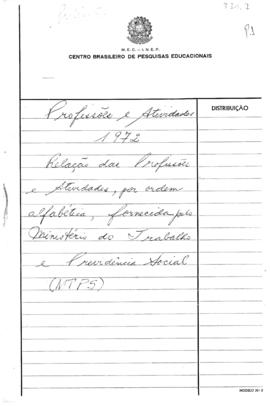 M.E.C. - I.N.E.P.
CENTRO BRASILEIRO DE PESQUISAS EDUCACIONAIS
P1
DISTRIBUIÇÃO
Profissões e Atividades
1972
Relação das Profissões
e Atividades, por ordem
alfabética, fornecida pelo
Ministério do Trabalho
e Previdência Social
(MTPS)